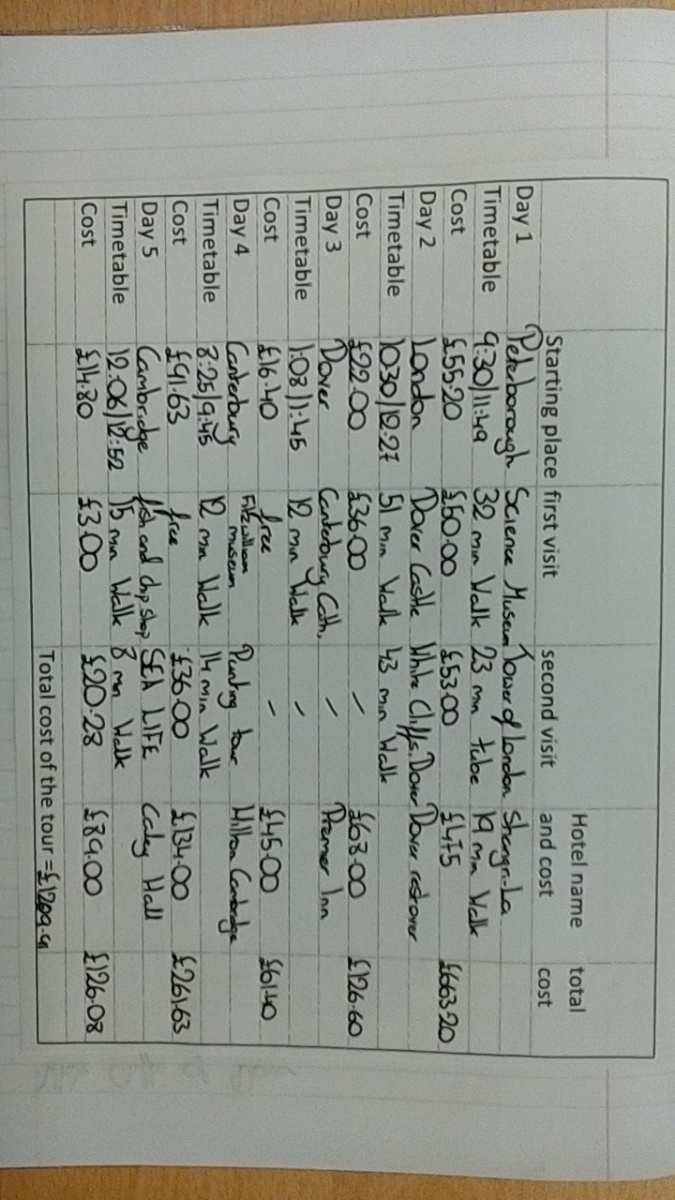 Starting place first visit second visit Hotel name and cost total cost
Day 1 Peterborough Science Museum Tower of London Shangri-La
Timetable 9:30/11:49 32 min Walk 23 min tube 19 min Walk
Cost £55.20 £50.00 £53.00 £475 £663.20
Day 2 London Dover Castle White Cliffs. Dover Dover restover
Timetable 10:30/12:27 51 min Walk 43 min Walk
Cost £22.00 £36.00 – £68.00 £126.60
Day 3 Dover Canterbury Cath. – Premer Inn
Timetable 1:08/1:45 12 min Walk –
Cost £16.40 free – £45.00 £61.40
Day 4 Canterbury Fitzwilliam museum Punting tour Hilton Cambridge
Timetable 8:25/9:45 12 min Walk 14 min Walk
Cost £91.63 free £36.00 £134.00 £261.63
Day 5 Cambridge fish and chip shop SEA LIFE Caley Hall
Timetable 12:06/12:52 15 min Walk 8 min Walk
Cost £14.80 £3.00 £20.28 £89.00 £126.08
Total cost of the tour = £1209.91